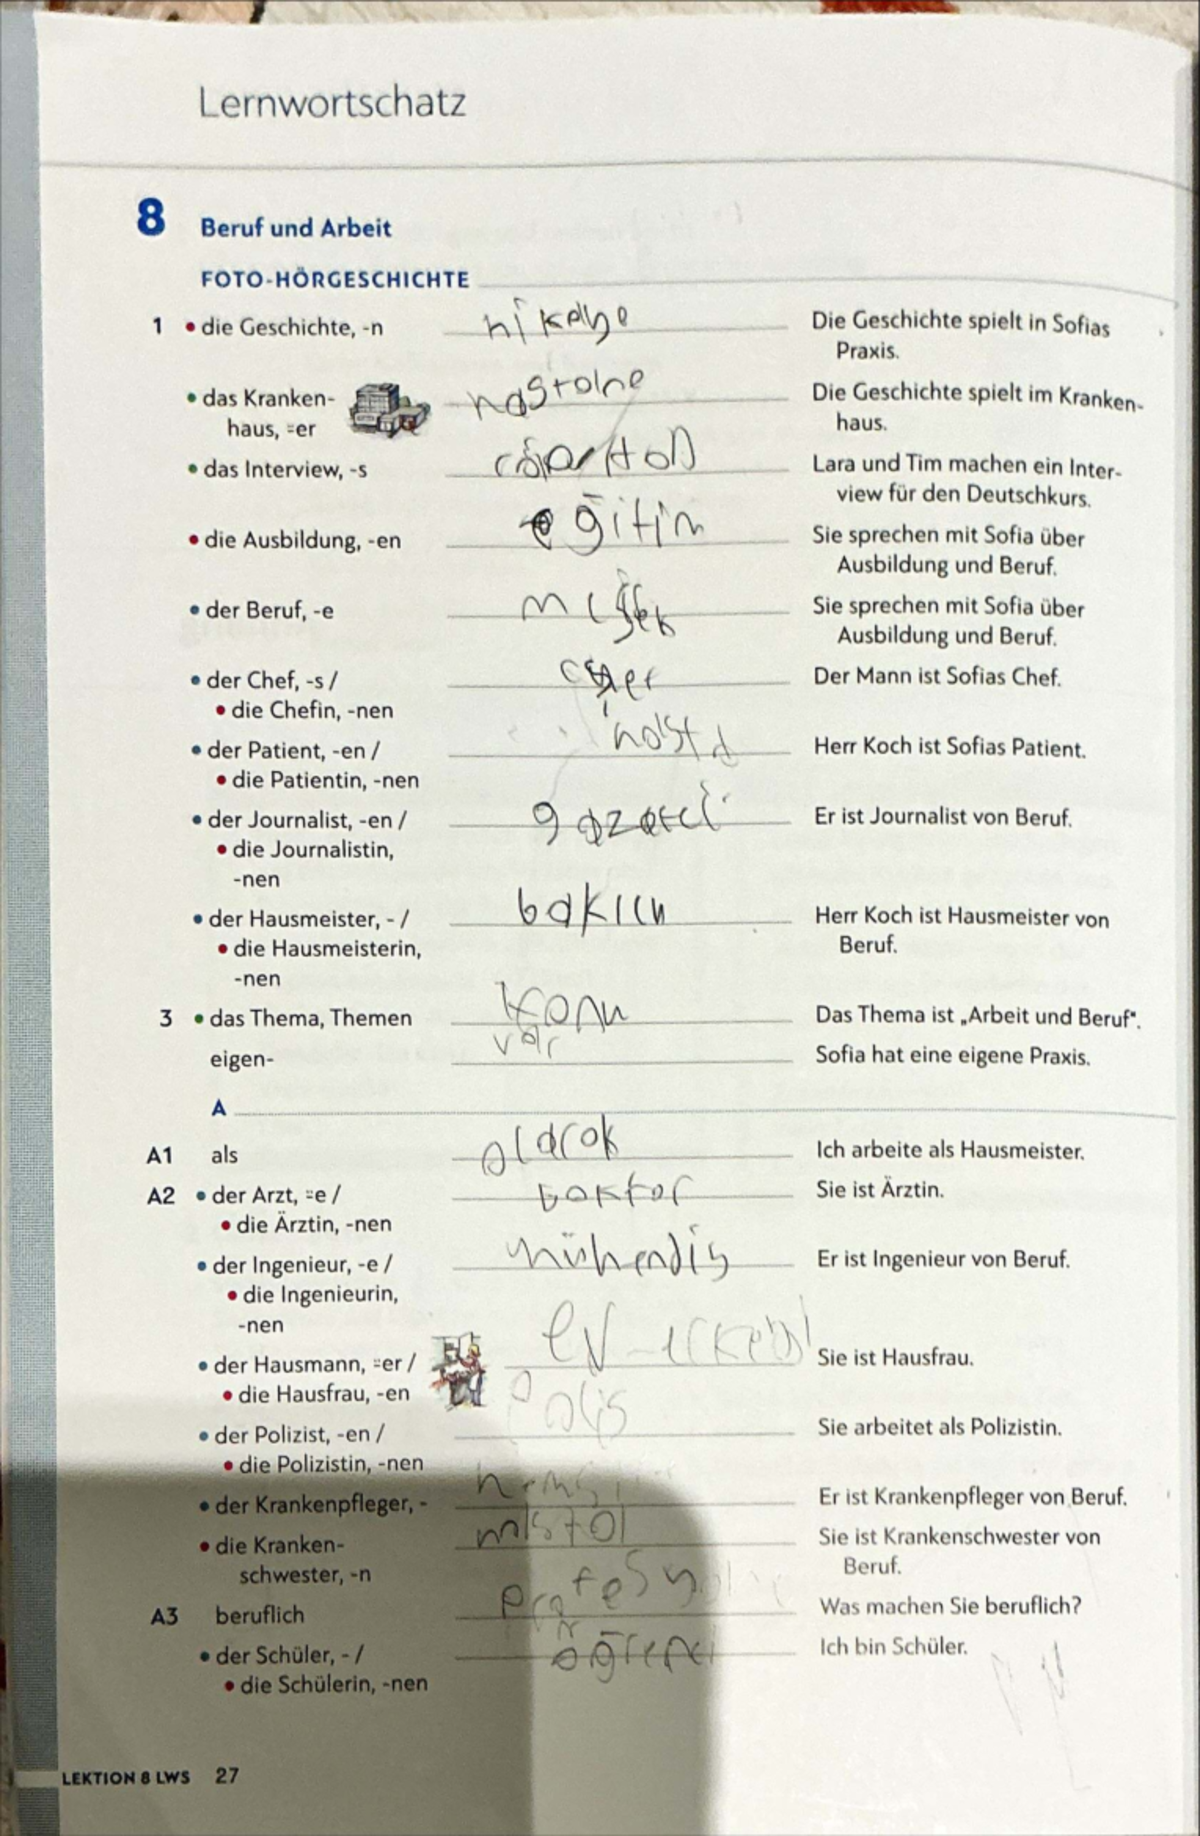 Lernwortschatz
8 Beruf und Arbeit
FOTO-HÖRGESCHICHTE
1 • die Geschichte, -n hikaye Die Geschichte spielt in Sofias
Praxis.
• das Kranken- hastane Die Geschichte spielt im Kranken-
haus, ⸚er haus.
• das Interview, -s Lara und Tim machen ein Inter-
view für den Deutschkurs.
• die Ausbildung, -en eğitim Sie sprechen mit Sofia über
Ausbildung und Beruf.
• der Beruf, -e Sie sprechen mit Sofia über
Ausbildung und Beruf.
• der Chef, -s / Der Mann ist Sofias Chef.
• die Chefin, -nen
• der Patient, -en / hasta Herr Koch ist Sofias Patient.
• die Patientin, -nen
• der Journalist, -en / Er ist Journalist von Beruf.
• die Journalistin,
-nen
• der Hausmeister, - / bakıcı Herr Koch ist Hausmeister von
• die Hausmeisterin, Beruf.
-nen
3 • das Thema, Themen konu Das Thema ist „Arbeit und Beruf“.
eigen- var Sofia hat eine eigene Praxis.
A
A1 als olarak Ich arbeite als Hausmeister.
A2 • der Arzt, ⸚e / Doktor Sie ist Ärztin.
• die Ärztin, -nen
• der Ingenieur, -e / mühendis Er ist Ingenieur von Beruf.
• die Ingenieurin,
-nen
• der Hausmann, ⸚er / ev Sie ist Hausfrau.
• die Hausfrau, -en
• der Polizist, -en / Polis Sie arbeitet als Polizistin.
• die Polizistin, -nen
• der Krankenpfleger, - Er ist Krankenpfleger von Beruf.
• die Kranken- Sie ist Krankenschwester von
schwester, -n Beruf.
A3 beruflich Was machen Sie beruflich?
• der Schüler, - / öğrenci Ich bin Schüler.
• die Schülerin, -nen
LEKTION 8 LWS 27